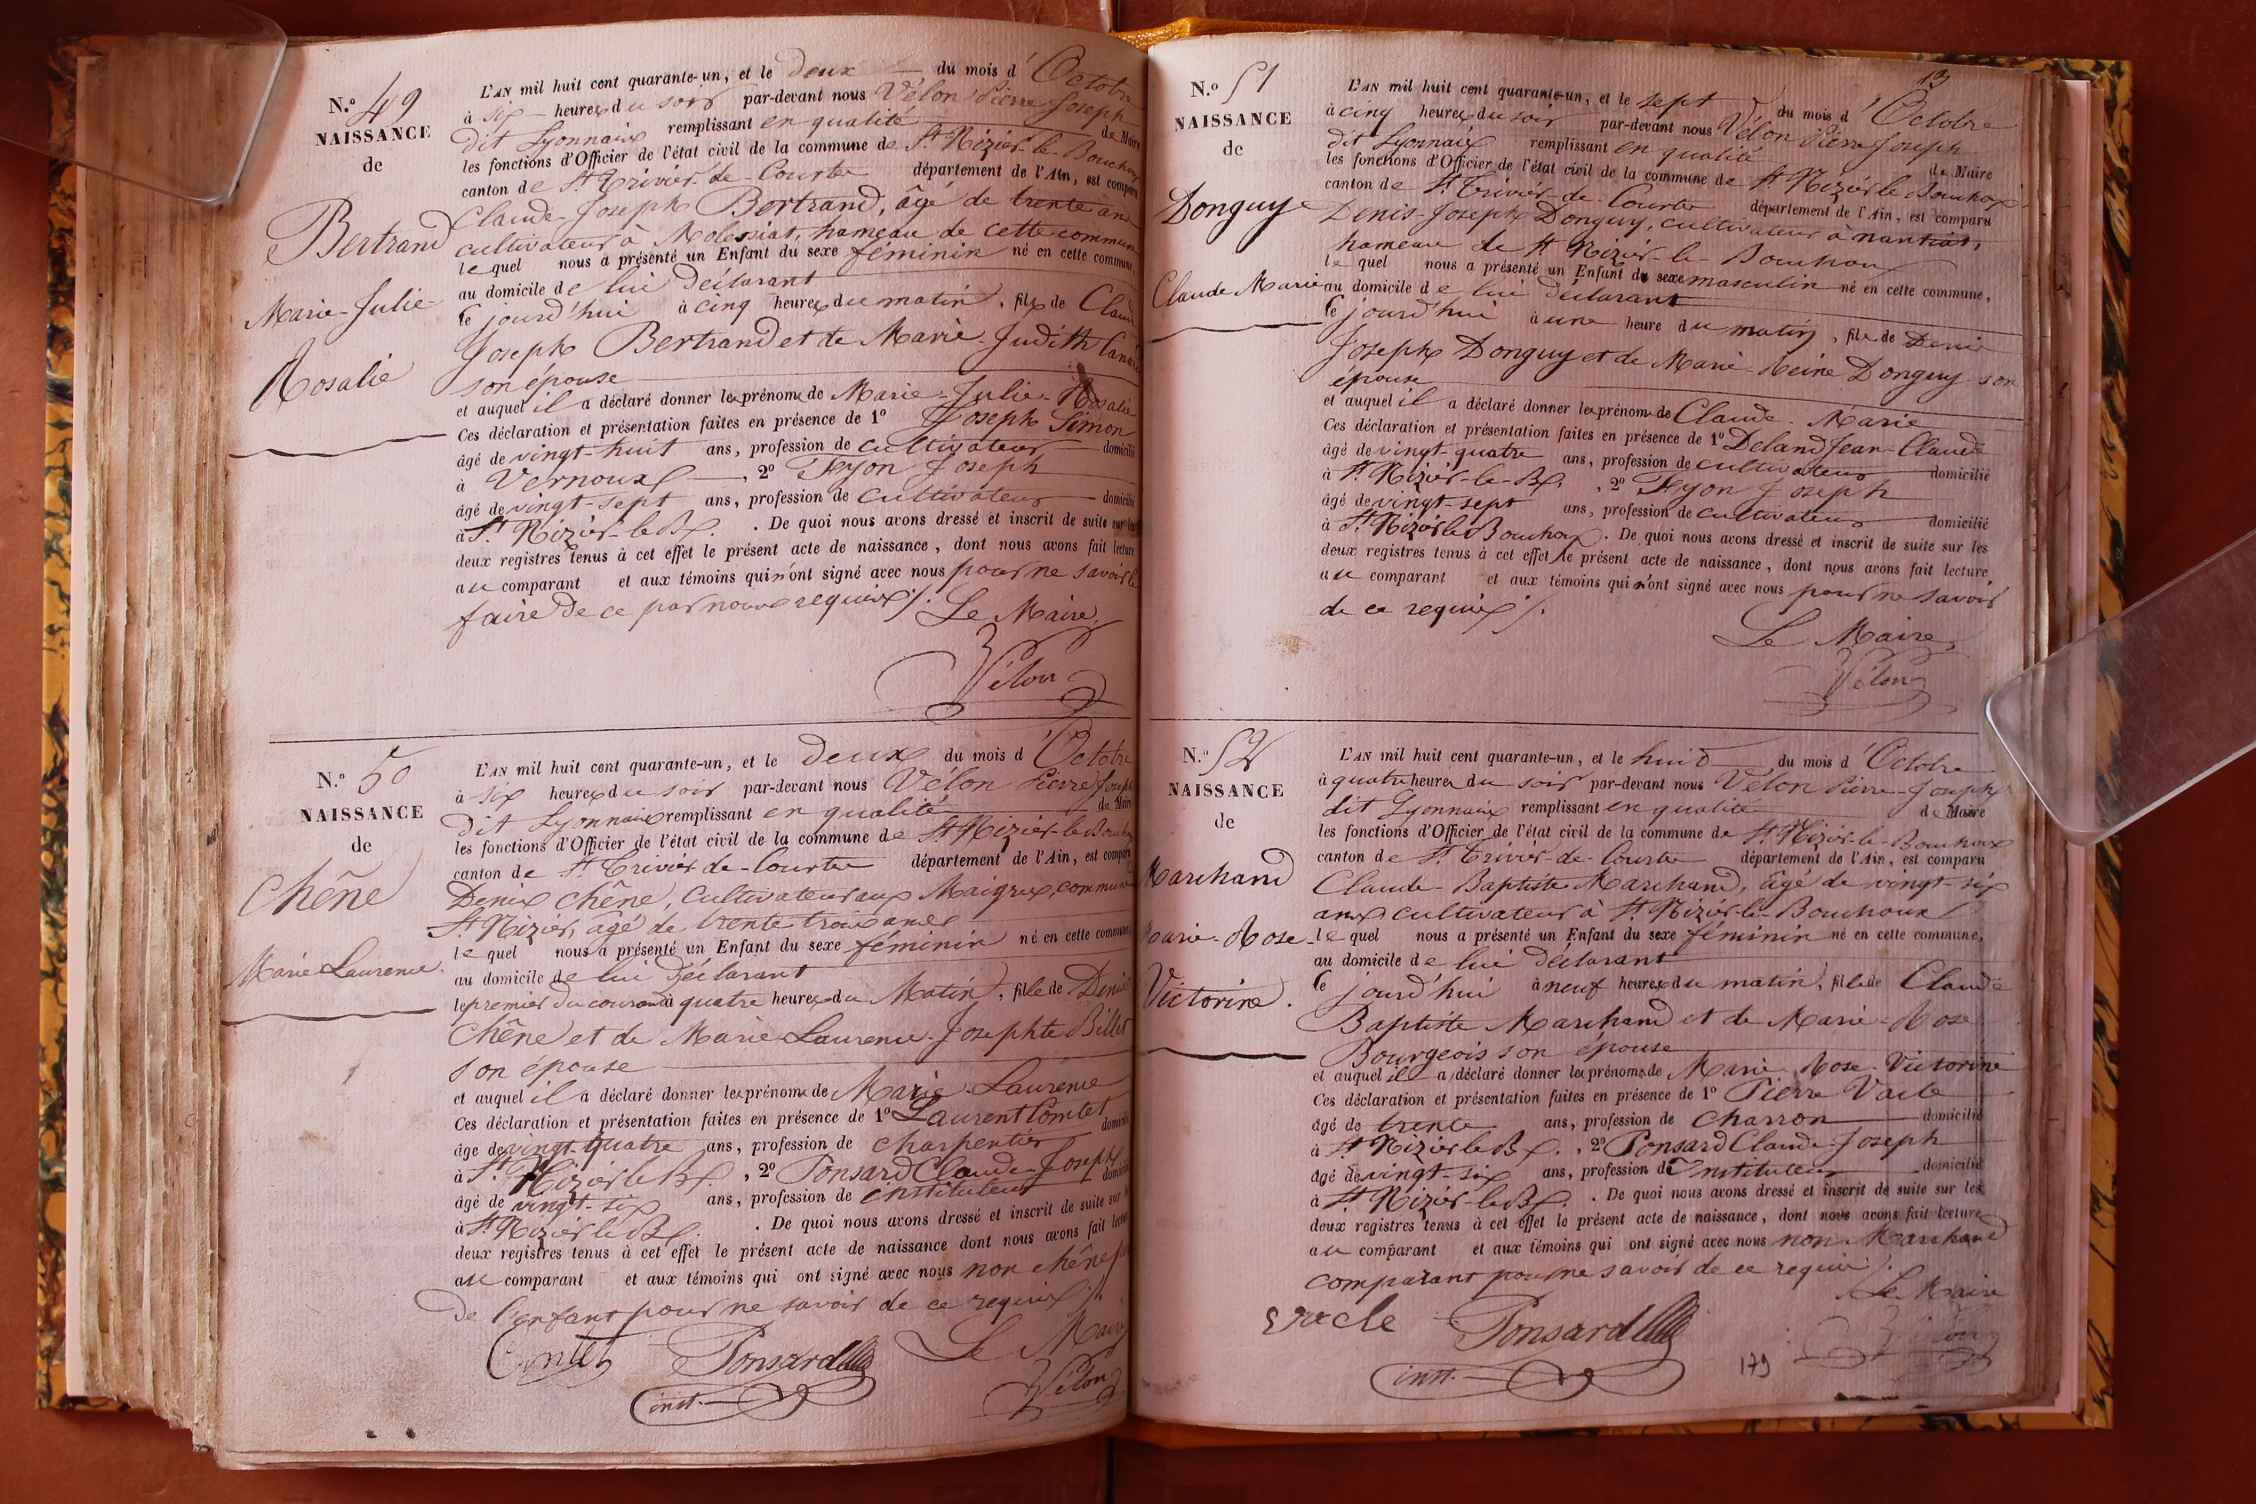 N.o 49
NAISSANCE
de
Bertrand
Marie-Julie-
Rosalie
L'AN mil huit cent quarante-un, et le deux du mois d'Octobre
à six heures du soir par-devant nous Vélon Pierre Joseph
dit Lyonnais remplissant en qualité de Maire
les fonctions d'Officier de l'état civil de la commune de St. Nizier-le-Bouchoux
canton de St. Trivier-de-Courtes département de l'Ain, est comparu
Claude-Joseph Bertrand, âgé de trente ans
cultivateur à Molessiat, hameau de cette commune
lequel nous a présenté un Enfant du sexe féminin né en cette commune,
au domicile de lui déclarant
ce jourd'hui à cinq heures du matin, fille de Claude
Joseph Bertrand et de Marie-Judith
son épouse
et auquel il a déclaré donner les prénoms de Marie-Julie-Rosalie
Ces déclaration et présentation faites en présence de 1o Joseph Simon
âgé de vingt-huit ans, profession de cultivateur domicilié
à Vernoux, 2o Fyon Joseph
âgé de vingt-sept ans, profession de cultivateur domicilié
à St. Nizier-le-Bx. . De quoi nous avons dressé et inscrit de suite sur les
deux registres tenus à cet effet le présent acte de naissance, dont nous avons fait lecture
au comparant et aux témoins qui n'ont signé avec nous pour ne savoir le
faire de ce par nous requis ./.
Le Maire,
Vélon
N.o 50
NAISSANCE
de
Chêne
Marie Laurence.
L'AN mil huit cent quarante-un, et le deux du mois d'Octobre
à six heures du soir par-devant nous Vélon Pierre Joseph
dit Lyonnais remplissant en qualité de Maire
les fonctions d'Officier de l'état civil de la commune de St Nizier-le-Bouchoux
canton de St. Trivier-de-Courtes département de l'Ain, est comparu
Denis Chêne, cultivateur aux Maigres, commune
St. Nizier, âgé de trente trois ans
lequel nous a présenté un Enfant du sexe féminin né en cette commune,
au domicile de lui déclarant
le premier du courant à quatre heures du Matin, fille de Denis
Chêne et de Marie Laurence-Josephte Billet
son épouse
et auquel il a déclaré donner les prénoms de Marie Laurence
Ces déclaration et présentation faites en présence de 1o Laurent Comtet
âgé de vingt-quatre ans, profession de charpentier domicilié
à St. Nizier le Bx. , 2o Ponsard Claude-Joseph
âgé de vingt-six ans, profession de instituteur domicilié
à St Nizier le Bx. . De quoi nous avons dressé et inscrit de suite sur les
deux registres tenus à cet effet le présent acte de naissance dont nous avons fait lecture
au comparant et aux témoins qui ont signé avec nous non chêne
de l'enfant pour ne savoir de ce requis ./.
Comtet Ponsard Le Maire
inst. Vélon
13
N.o 51
NAISSANCE
de
Donguy
Claude Marie
L'AN mil huit cent quarante-un, et le sept du mois d'Octobre
à cinq heures du soir par-devant nous Vélon Pierre Joseph
dit Lyonnais remplissant en qualité de Maire
les fonctions d'Officier de l'état civil de la commune de St. Nizier le Bouchoux
canton de St. Trivier-de-Courtes département de l'Ain, est comparu
Denis-Joseph Donguy, cultivateur à nantiat,
hameau de St Nizier-le-Bouchoux
lequel nous a présenté un Enfant du sexe masculin né en cette commune,
au domicile de lui déclarant
ce jourd'hui à une heure du matin, fils de Denis
Joseph Donguy et de Marie-Reine Donguy son
épouse
et auquel il a déclaré donner les prénoms de Claude-Marie
Ces déclaration et présentation faites en présence de 1o Deland Jean-Claude
âgé de vingt-quatre ans, profession de cultivateur domicilié
à St. Nizier-le-Bx. , 2o Fyon Joseph
âgé de vingt-sept ans, profession de cultivateur domicilié
à St. Nizier le Bouchoux. De quoi nous avons dressé et inscrit de suite sur les
deux registres tenus à cet effet le présent acte de naissance, dont nous avons fait lecture
au comparant et aux témoins qui n'ont signé avec nous pour ne savoir
de ce requis ./.
Le Maire
Vélon
N.o 52
NAISSANCE
de
Marchand
Marie-Rose-
Victorine.
L'AN mil huit cent quarante-un, et le huit du mois d'Octobre
à quatre heures du soir par-devant nous Vélon Pierre-Joseph
dit Lyonnais remplissant en qualité de Maire
les fonctions d'Officier de l'état civil de la commune de St. Nizier-le-Bouchoux
canton de St. Trivier-de-Courtes département de l'Ain, est comparu
Claude-Baptiste Marchand, âgé de vingt-six
ans, cultivateur à St. Nizier-le-Bouchoux
lequel nous a présenté un Enfant du sexe féminin né en cette commune,
au domicile de lui déclarant
ce jourd'hui à neuf heures du matin, fille de Claude
Baptiste Marchand et de Marie-Rose
Bourgeois son épouse
et auquel il a déclaré donner les prénoms de Marie Rose-Victorine
Ces déclaration et présentation faites en présence de 1o Pierre Vacle
âgé de trente ans, profession de charron domicilié
à St. Nizier le Bx. , 2o Ponsard Claude Joseph
âgé de vingt-six ans, profession d'Instituteur domicilié
à St. Nizier-le Bx. . De quoi nous avons dressé et inscrit de suite sur les
deux registres tenus à cet effet le présent acte de naissance, dont nous avons fait lecture
au comparant et aux témoins qui ont signé avec nous non Marchand
comparant pour ne savoir de ce requis ./.
Le Maire
vacle Ponsard
inst. Vélon
179